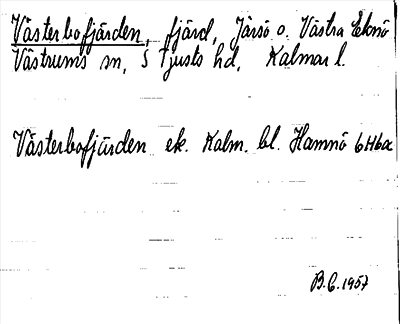 Västerbofjärden, fjärd, Järsö o. Västra Eknö
Västrums sn, S Tjusts hd, Kalmar l.
Västerbofjärden ek. Kalm. bl. Hamnö 6H6a
B.C. 1957